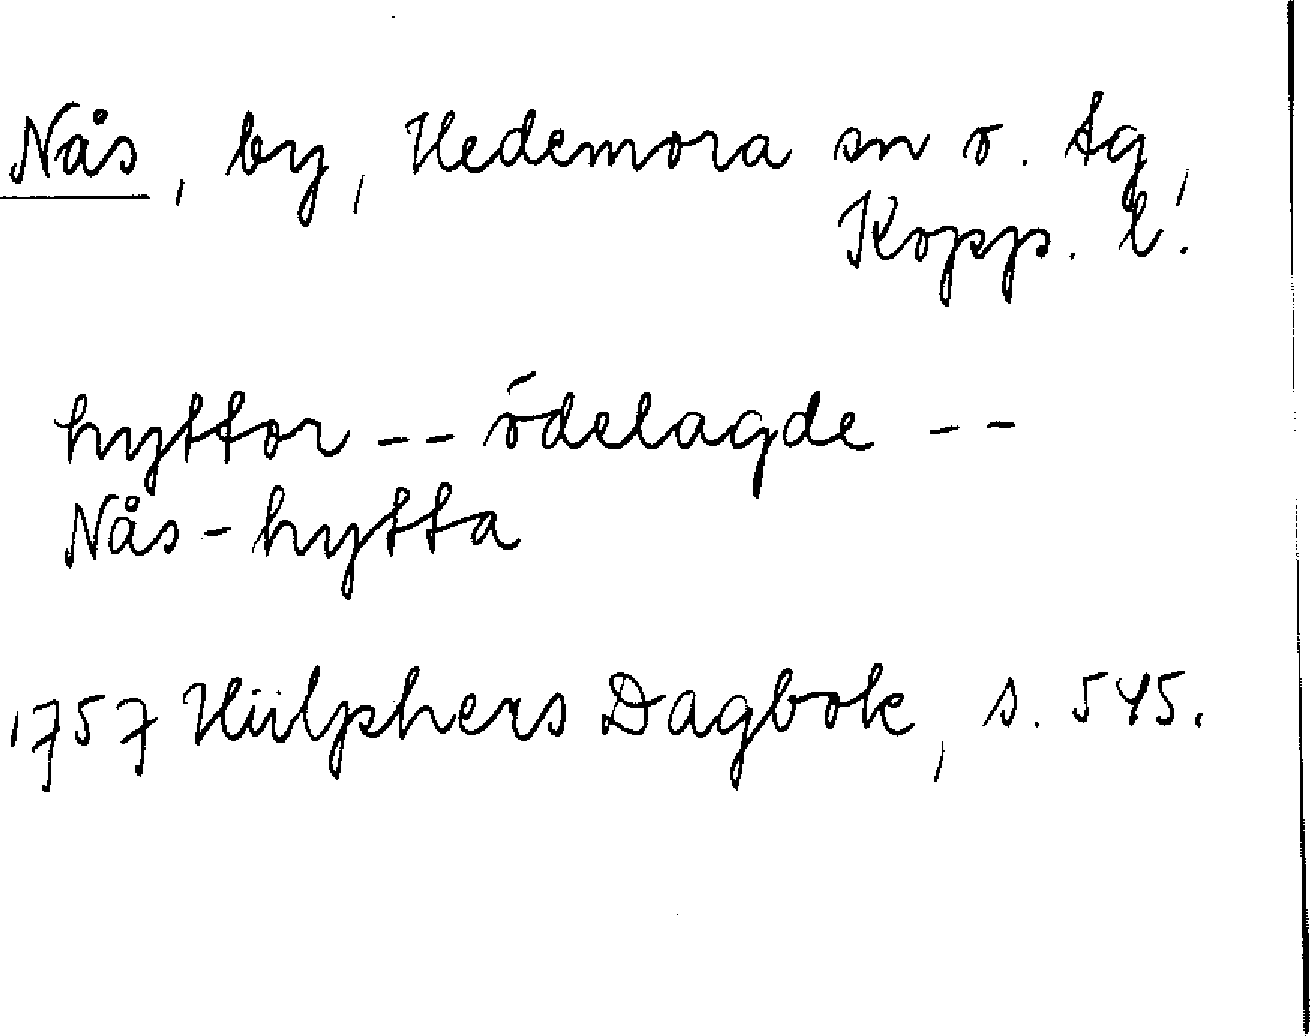 Nås, by, Hedemora sn o. tg,
Kopp. l.
hyttor -- ödelagde --
Nås-hytta
1757 Hülphers Dagbok, s. 545.